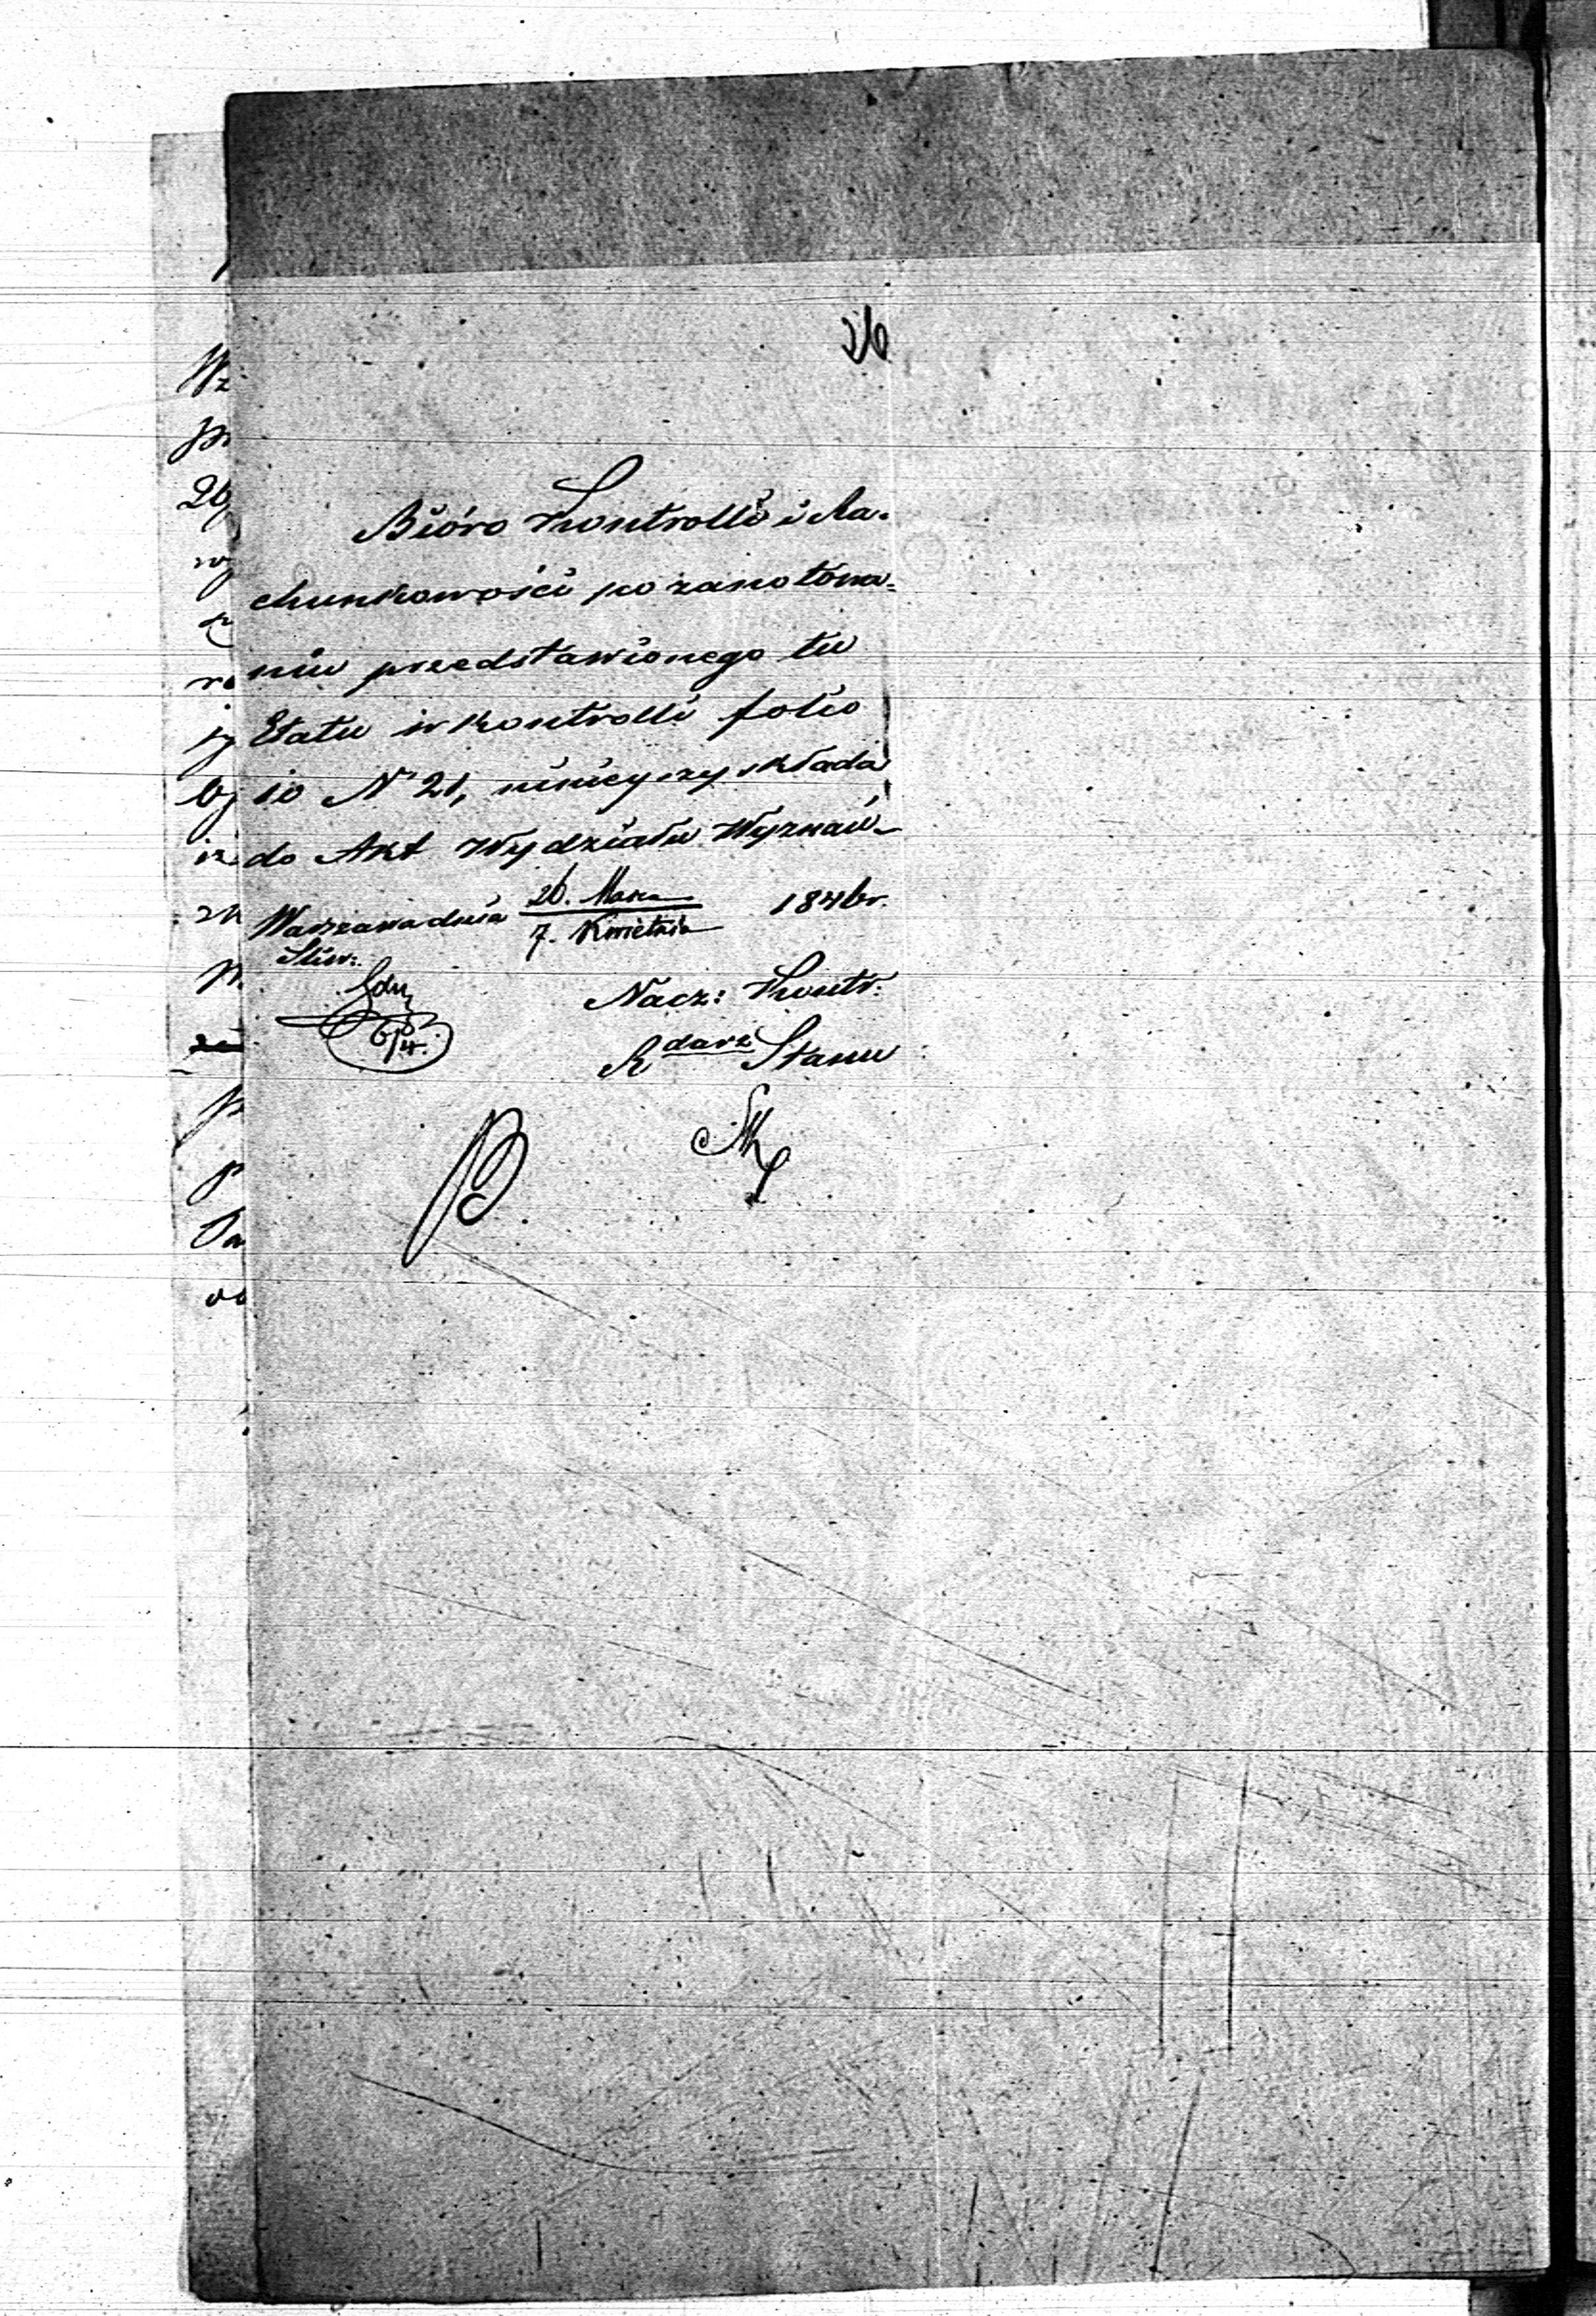 26
Bióro Kontrolli i Ra-
chunkowości po zanotowa-
niu przedstawionego tu
Etatu w kontrolli folio
10 N 21, niniejszy składa
do Akt Wydziału Wyznań
Warszawa dnia 26. Marca 1846 r.
7. Kwietnia
Nacz: Kontr:
R darz Stanu
6/4.